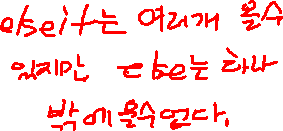 elseif는 여러개 올수
있지만 else는 하나
밖에 올수 없다.